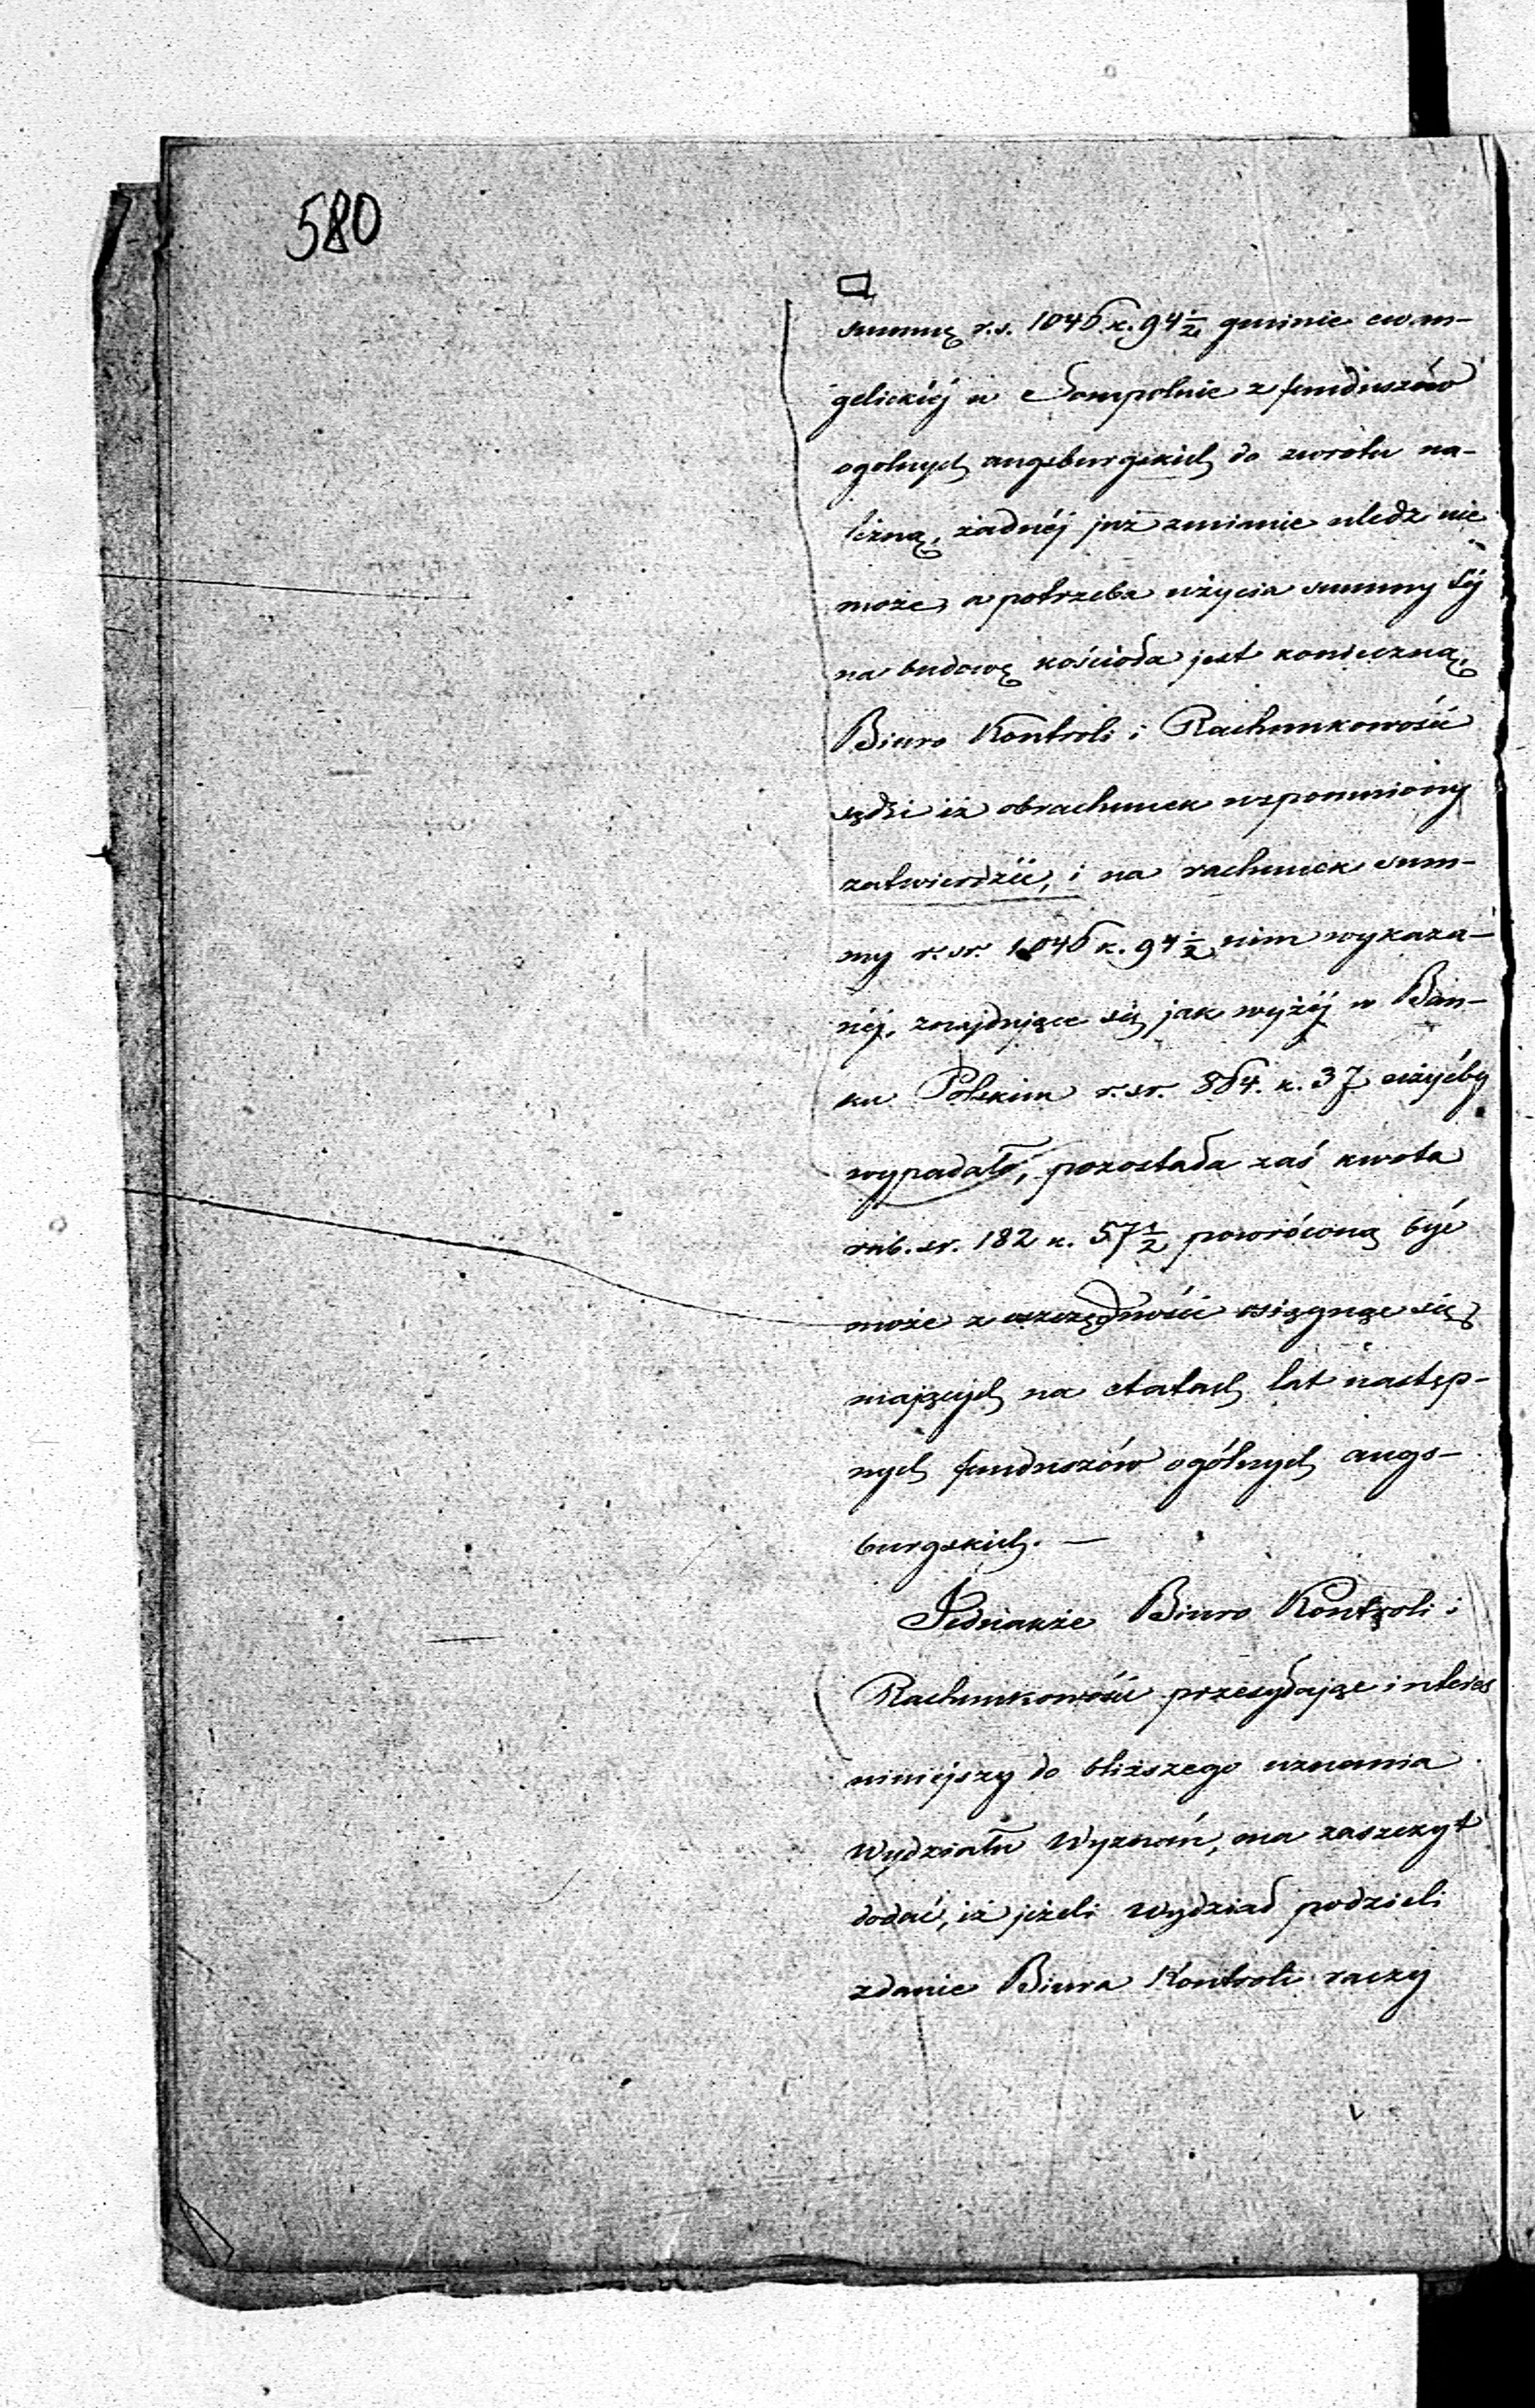 580
summę r.s. 1046 k. 94½ gminie ewan-
gelickiéj w Sompolnie z funduszów
ogolnych augsburgskich do zwrotu na-
leżną, żadnéj już zmianie uledz nie
może, a potrzeba użycia summy téj
na budowę kościoła jest konieczną,
Biuro Kontroli i Rachunkowości
sądzi iż obrachunek wspomniony
zatwierdzić, i na rachunek sum-
my r. sr. 1046 k. 94½ nim wykaza-
néj, znajdujące się jak wyżéj w Ban-
ku Polskim r. sr. 864. k. 37 użyćby
wypadało, pozostała zaś kwota
rub. sr. 182 k. 57½ powróconą być
może z oszczędności osiągnąć się
mających na etatach lat następ-
nych funduszów ogólnych augs-
burgskich. —
Jednakże Biuro Kontroli i
Rachunkowości przesyłając interes
niniejszy do bliższego uznania
Wydziału Wyznań, ma zaszczyt
dodać, iż jeżeli Wydział podzieli
zdanie Biura Kontroli raczy